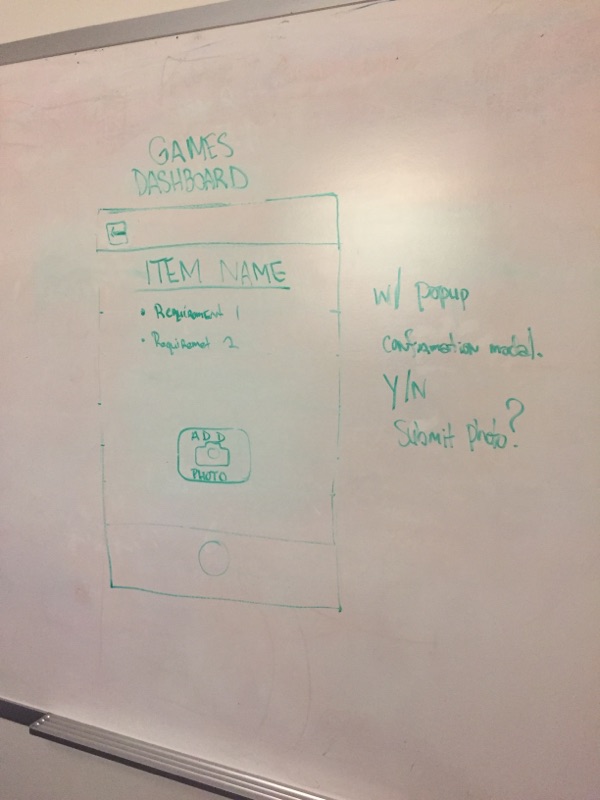 GAMES
DASHBOARD
ITEM NAME
• Requirement 1
• Requiremet 2
ADD
PHOTO
w/ popup
confirmation modal.
Y/N
Submit photo?